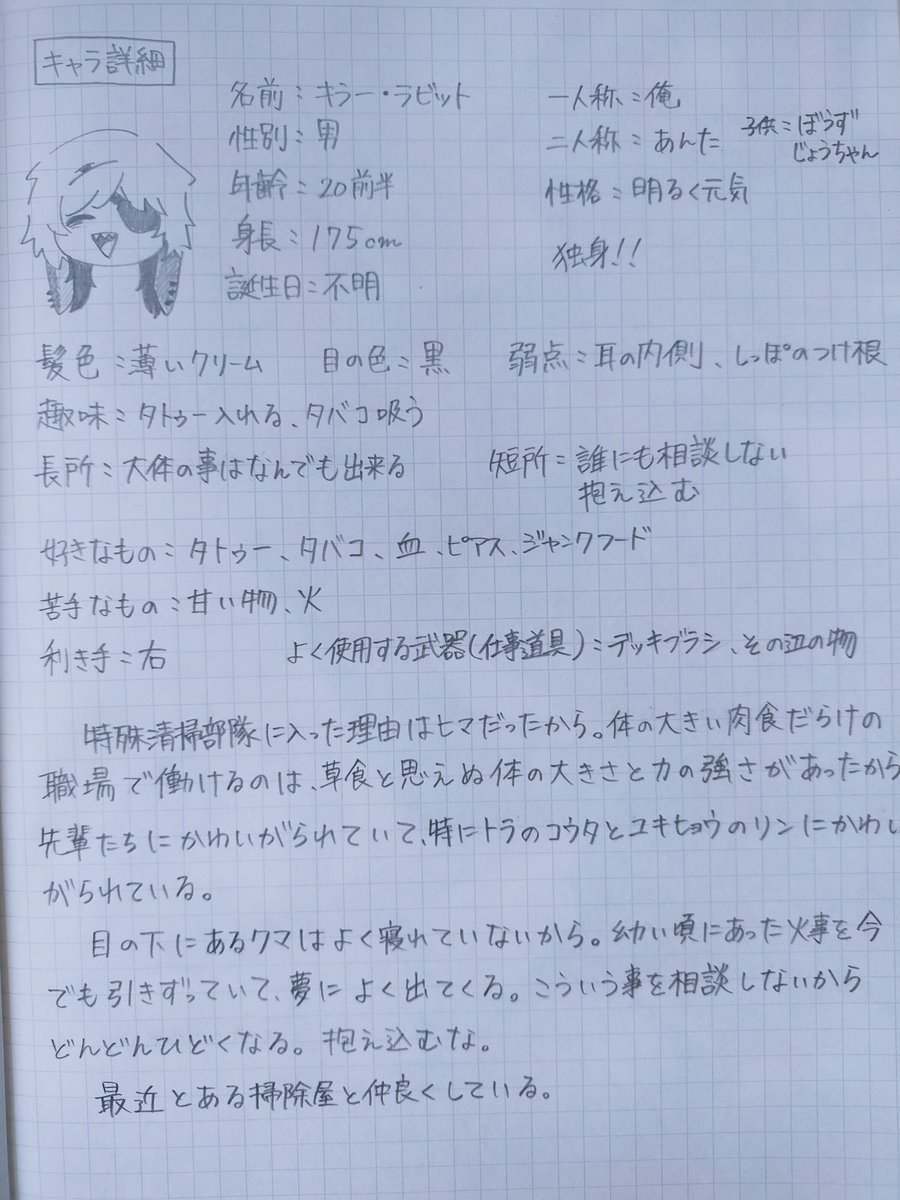 キャラ詳細
名前：キラー・ラビット
一人称：俺
性別：男
二人称：あんた 子供＝ぼうず
じょうちゃん
年齢：20前半
性格：明るく元気
身長：175cm
独身!!
誕生日：不明
髪色：薄いクリーム 目の色：黒 弱点：耳の内側、しっぽのつけ根
趣味：タトゥー入れる、タバコ吸う
長所：大体の事はなんでも出来る 短所：誰にも相談しない
抱え込む
好きなもの：タトゥー、タバコ、血、ピアス、ジャンクフード
苦手なもの：甘い物、火
利き手：右 よく使用する武器(仕事道具)：デッキブラシ、その辺の物
特殊清掃部隊に入った理由はヒマだったから。体の大きい肉食だらけの
職場で働けるのは、草食と思えぬ体の大きさと力の強さがあったから
先輩たちにかわいがられていて、特にトラのコウタとユキヒョウのリンにかわい
がられている。
目の下にあるクマはよく寝れていないから。幼い頃にあった火事を今
でも引きずっていて、夢によく出てくる。こういう事を相談しないから
どんどんひどくなる。抱え込むな。
最近とある掃除屋と仲良くしている。